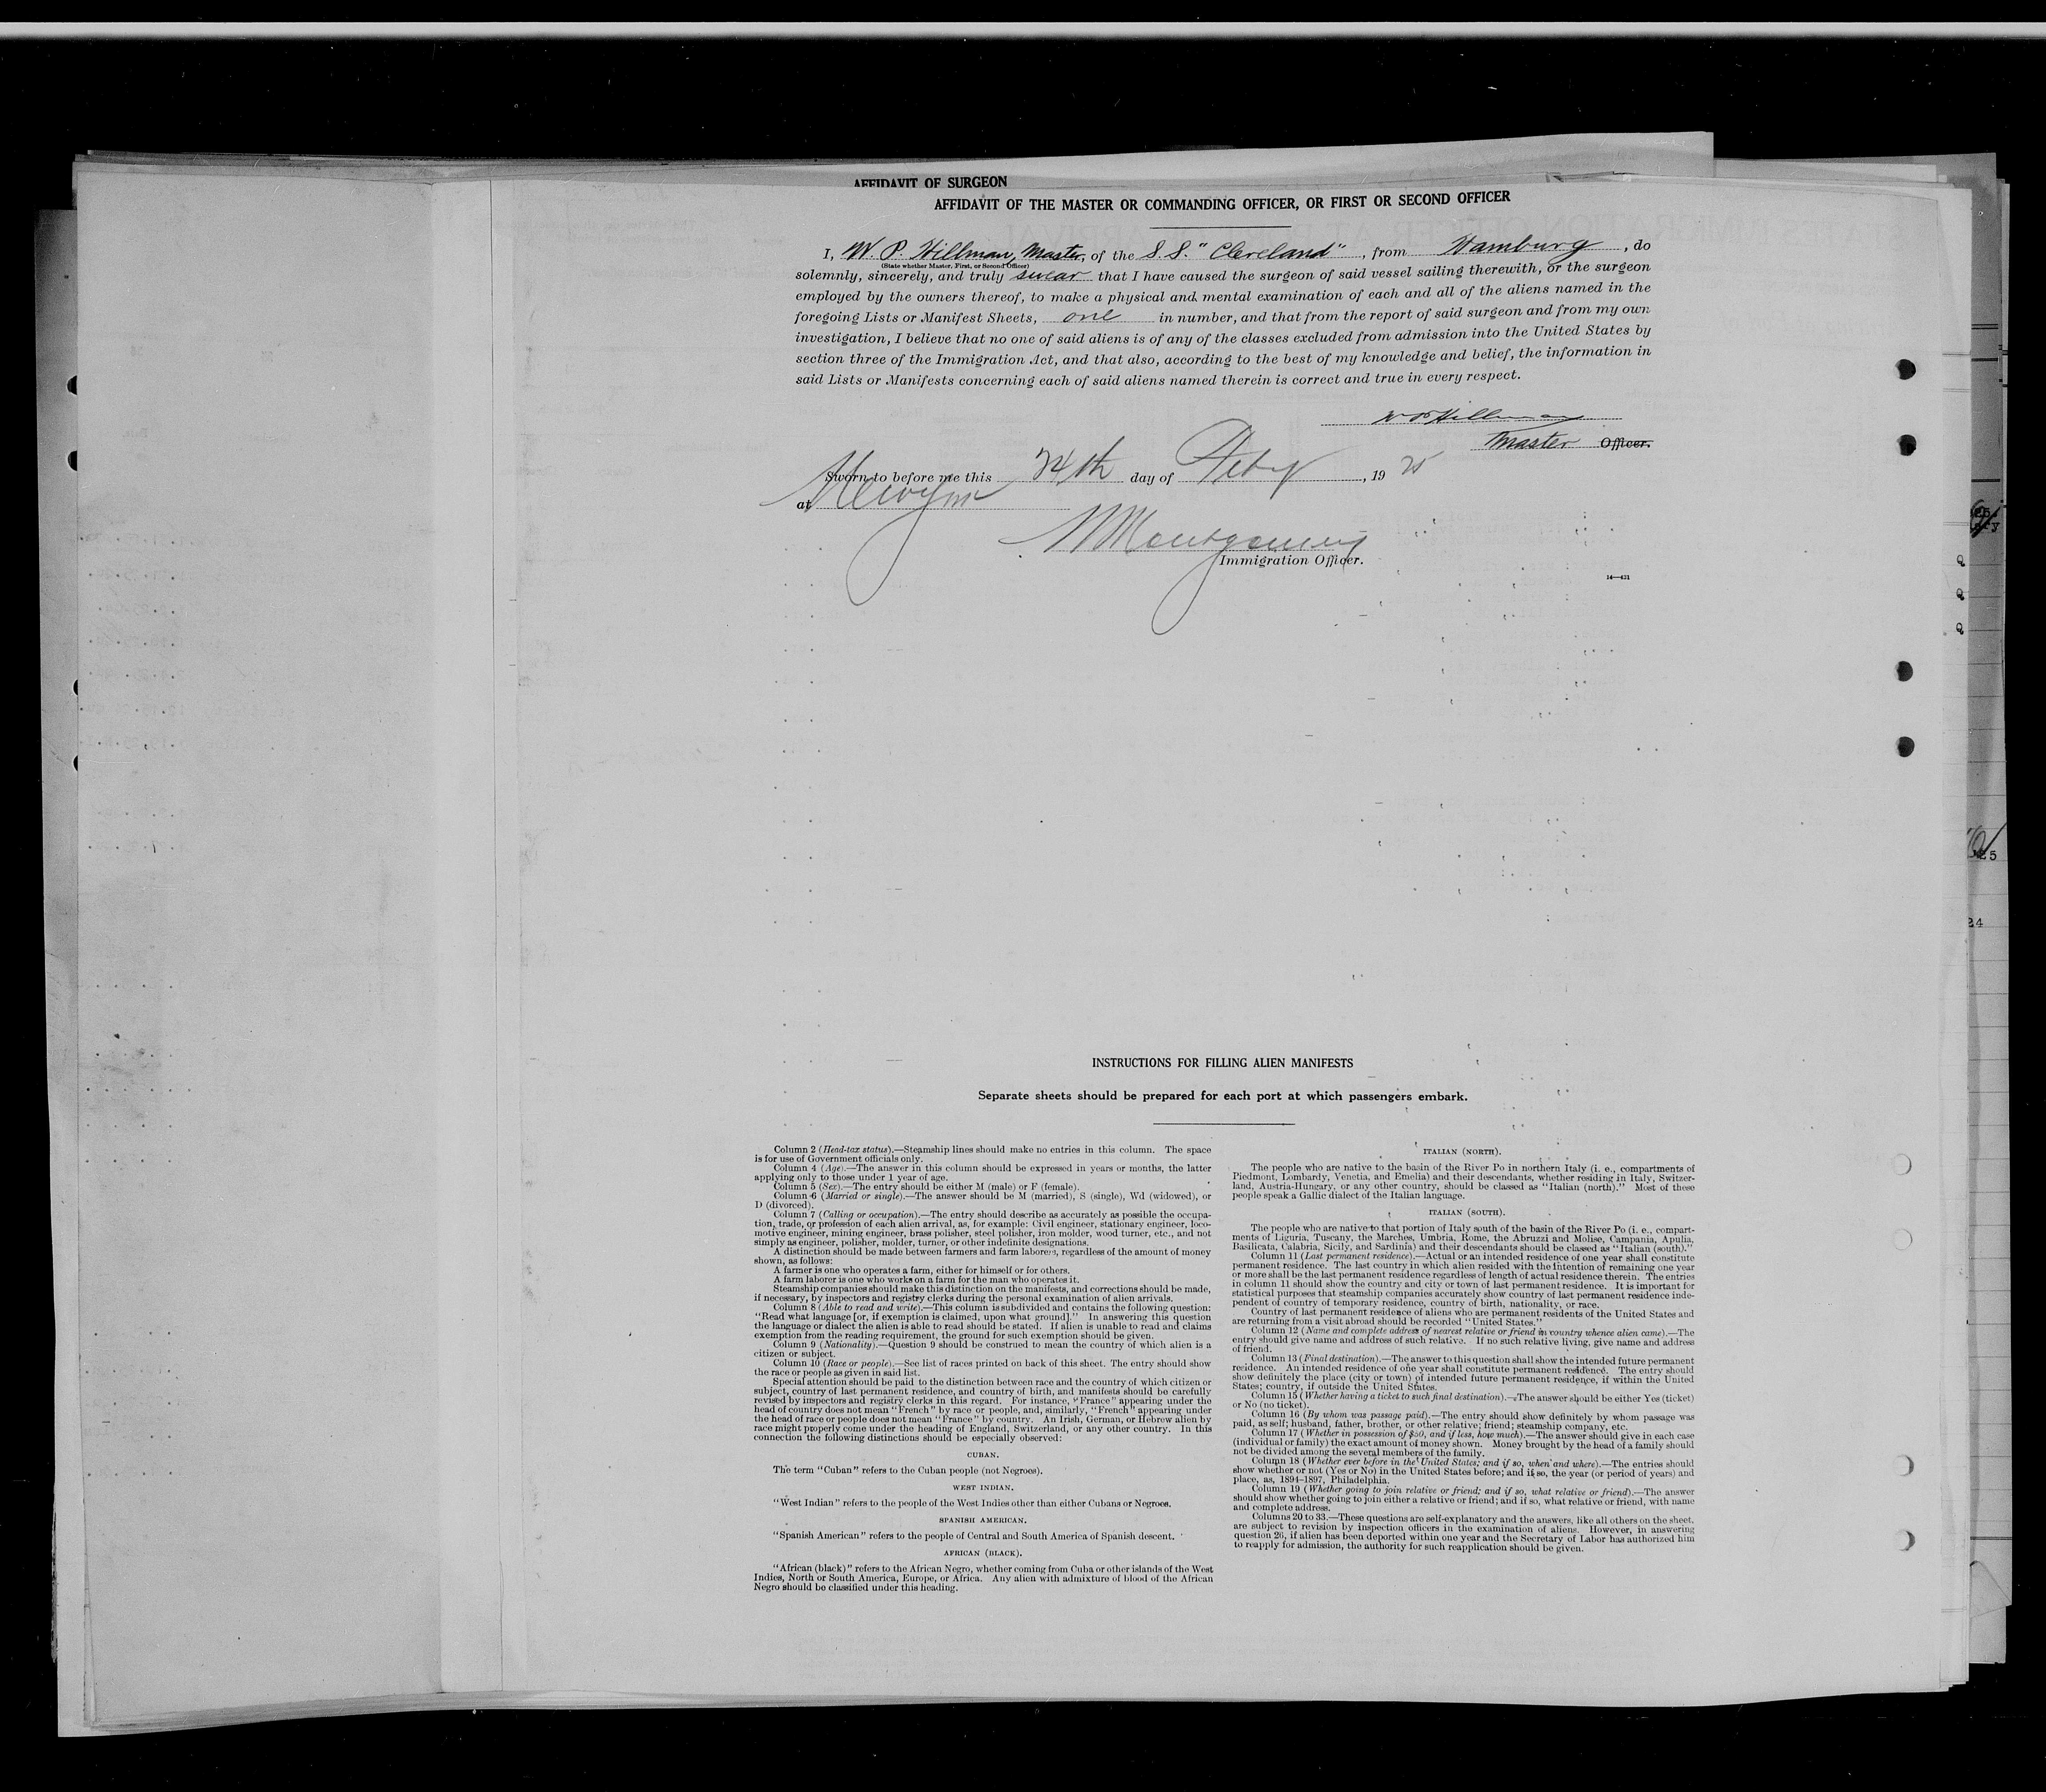 AFFIDAVIT OF SURGEON
AFFIDAVIT OF THE MASTER OR COMMANDING OFFICER, OR FIRST OR SECOND OFFICER
I, W. P. Hillman, Master, of the S.S. "Cleveland", from Hamburg, do
(State whether Master, First, or Second Officer)
solemnly, sincerely, and truly swear that I have caused the surgeon of said vessel sailing therewith, or the surgeon
employed by the owners thereof, to make a physical and mental examination of each and all of the aliens named in the
foregoing Lists or Manifest Sheets, one in number, and that from the report of said surgeon and from my own
investigation, I believe that no one of said aliens is of any of the classes excluded from admission into the United States by
section three of the Immigration Act, and that also, according to the best of my knowledge and belief, the information in
said Lists or Manifests concerning each of said aliens named therein is correct and true in every respect.
W P Hillman
Master Officer.
Sworn to before me this 24th day of Feby, 19 25
at
Montgomery
Immigration Officer.
14—431
INSTRUCTIONS FOR FILLING ALIEN MANIFESTS
Separate sheets should be prepared for each port at which passengers embark.
Column 2 (Head-tax status).—Steamship lines should make no entries in this column. The space
is for use of Government officials only.
Column 4 (Age).—The answer in this column should be expressed in years or months, the latter
applying only to those under 1 year of age.
Column 5 (Sex).—The entry should be either M (male) or F (female).
Column 6 (Married or single).—The answer should be M (married), S (single), Wd (widowed), or
D (divorced).
Column 7 (Calling or occupation).—The entry should describe as accurately as possible the occupa-
tion, trade, or profession of each alien arrival, as, for example: Civil engineer, stationary engineer, loco-
motive engineer, mining engineer, brass polisher, steel polisher, iron molder, wood turner, etc., and not
simply as engineer, polisher, molder, turner, or other indefinite designations.
A distinction should be made between farmers and farm laborers, regardless of the amount of money
shown, as follows:
A farmer is one who operates a farm, either for himself or for others.
A farm laborer is one who works on a farm for the man who operates it.
Steamship companies should make this distinction on the manifests, and corrections should be made,
if necessary, by inspectors and registry clerks during the personal examination of alien arrivals.
Column 8 (Able to read and write).—This column is subdivided and contains the following question:
"Read what language [or, if exemption is claimed, upon what ground]." In answering this question
the language or dialect the alien is able to read should be stated. If alien is unable to read and claims
exemption from the reading requirement, the ground for such exemption should be given.
Column 9 (Nationality).—Question 9 should be construed to mean the country of which alien is a
citizen or subject.
Column 10 (Race or people).—See list of races printed on back of this sheet. The entry should show
the race or people as given in said list.
Special attention should be paid to the distinction between race and the country of which citizen or
subject, country of last permanent residence, and country of birth, and manifests should be carefully
revised by inspectors and registry clerks in this regard. For instance, "France" appearing under the
head of country does not mean "French" by race or people, and, similarly, "French" appearing under
the head of race or people does not mean "France" by country. An Irish, German, or Hebrew alien by
race might properly come under the heading of England, Switzerland, or any other country. In this
connection the following distinctions should be especially observed:
CUBAN.
The term "Cuban" refers to the Cuban people (not Negroes).
WEST INDIAN.
"West Indian" refers to the people of the West Indies other than either Cubans or Negroes.
SPANISH AMERICAN.
"Spanish American" refers to the people of Central and South America of Spanish descent.
AFRICAN (BLACK).
"African (black)" refers to the African Negro, whether coming from Cuba or other islands of the West
Indies, North or South America, Europe, or Africa. Any alien with admixture of blood of the African
Negro should be classified under this heading.
ITALIAN (NORTH).
The people who are native to the basin of the River Po in northern Italy (i. e., compartments of
Piedmont, Lombardy, Venetia, and Emelia) and their descendants, whether residing in Italy, Switzer-
land, Austria-Hungary, or any other country, should be classed as "Italian (north)." Most of these
people speak a Gallic dialect of the Italian language.
ITALIAN (SOUTH).
The people who are native to that portion of Italy south of the basin of the River Po (i. e., compart-
ments of Liguria, Tuscany, the Marches, Umbria, Rome, the Abruzzi and Molise, Campania, Apulia,
Basilicata, Calabria, Sicily, and Sardinia) and their descendants should be classed as "Italian (south)."
Column 11 (Last permanent residence).—Actual or an intended residence of one year shall constitute
permanent residence. The last country in which alien resided with the intention of remaining one year
or more shall be the last permanent residence regardless of length of actual residence therein. The entries
in column 11 should show the country and city or town of last permanent residence. It is important for
statistical purposes that steamship companies accurately show country of last permanent residence inde-
pendent of country of temporary residence, country of birth, nationality, or race.
Country of last permanent residence of aliens who are permanent residents of the United States and
are returning from a visit abroad should be recorded "United States."
Column 12 (Name and complete address of nearest relative or friend in country whence alien came).—The
entry should give name and address of such relative. If no such relative living, give name and address
of friend.
Column 13 (Final destination).—The answer to this question shall show the intended future permanent
residence. An intended residence of one year shall constitute permanent residence. The entry should
show definitely the place (city or town) of intended future permanent residence, if within the United
States; country, if outside the United States.
Column 15 (Whether having a ticket to such final destination).—The answer should be either Yes (ticket)
or No (no ticket).
Column 16 (By whom was passage paid).—The entry should show definitely by whom passage was
paid, as self; husband, father, brother, or other relative; friend; steamship company, etc.
Column 17 (Whether in possession of $50, and if less, how much).—The answer should give in each case
(individual or family) the exact amount of money shown. Money brought by the head of a family should
not be divided among the several members of the family.
Column 18 (Whether ever before in the United States; and if so, when and where).—The entries should
show whether or not (Yes or No) in the United States before; and if so, the year (or period of years) and
place, as, 1894-1897, Philadelphia.
Column 19 (Whether going to join relative or friend; and if so, what relative or friend).—The answer
should show whether going to join either a relative or friend; and if so, what relative or friend, with name
and complete address.
Columns 20 to 33.—These questions are self-explanatory and the answers, like all others on the sheet,
are subject to revision by inspection officers in the examination of aliens. However, in answering
question 26, if alien has been deported within one year and the Secretary of Labor has authorized him
to reapply for admission, the authority for such reapplication should be given.